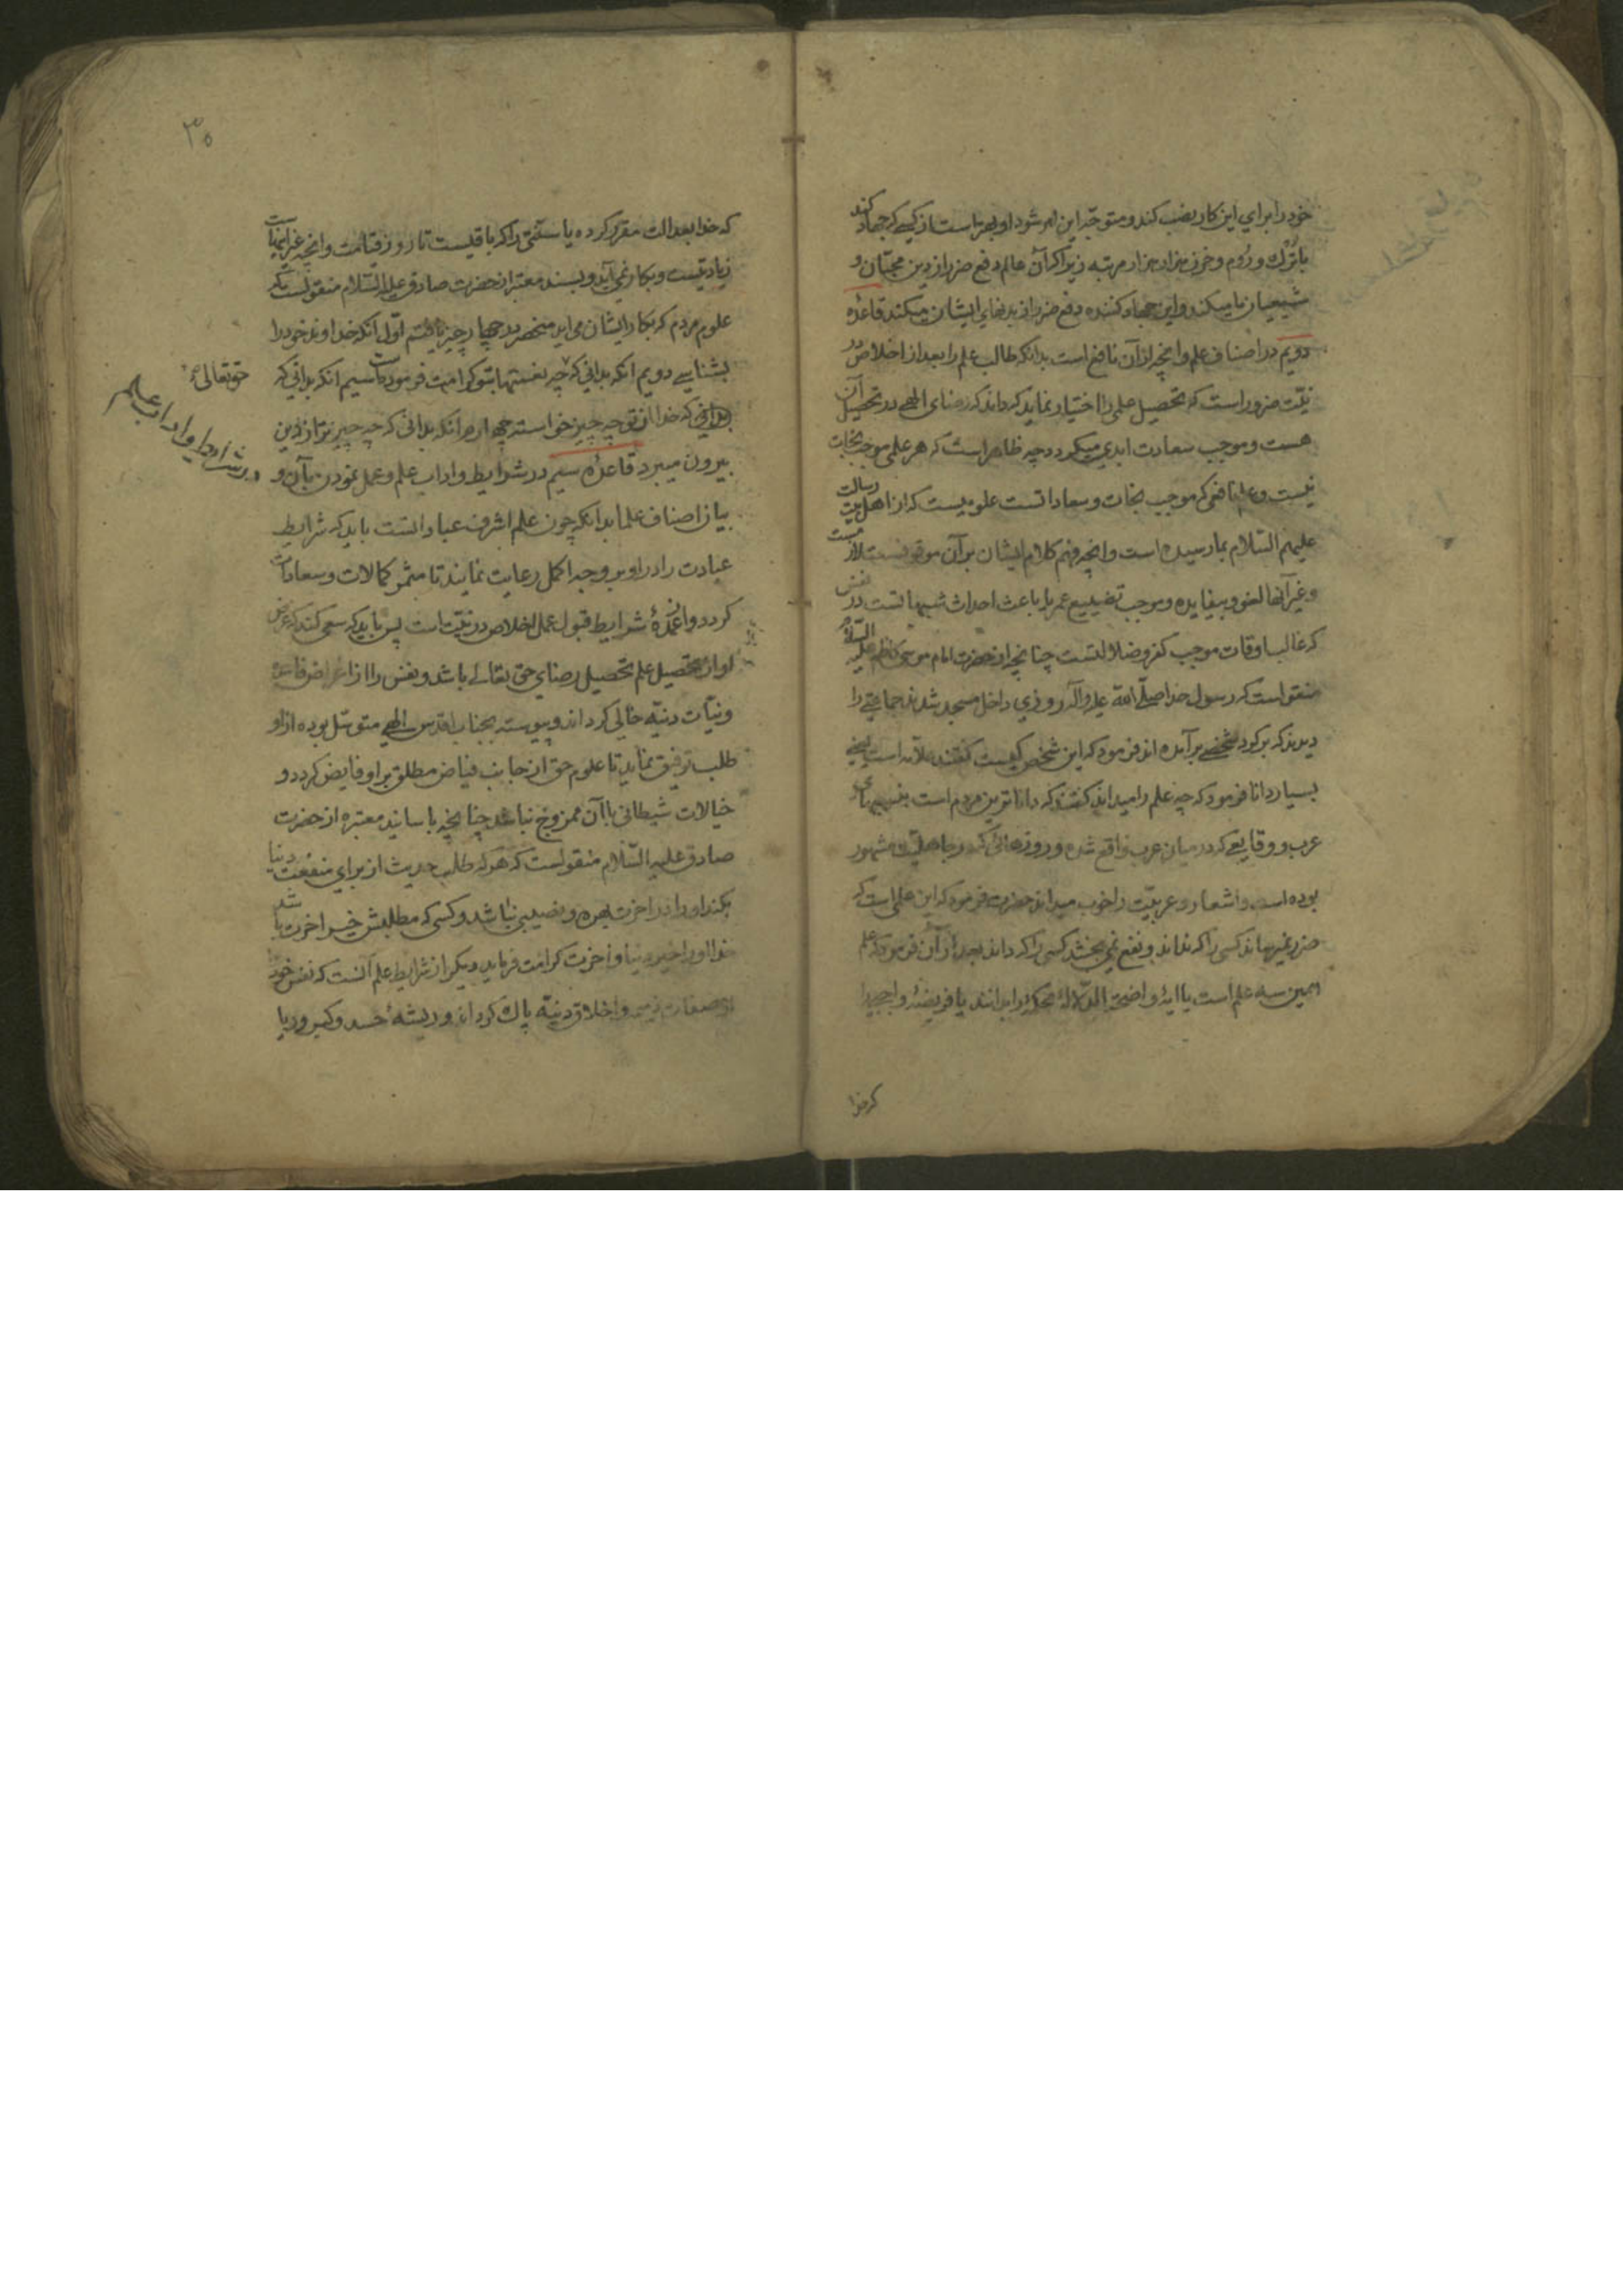 خود را برای این کار نصب کند و متوجّه این امر شود او بهتر است از کسی که جهاد کند
با ترک و روم و خزر هزار هزار مرتبه زیرا که آن عالم دفع ضرر از دین محبّان و
شیعیان ما میکند و این جهاد کننده دفع ضرر از بدنهای ایشان میکند قاعدهٔ
دویم در اصناف علم و آنچه از آن نافع است بدانکه طالب علم را بعد از اخلاص در
نیّت ضرور است که تحصیل علمی را اختیار نماید که داند که رضای الهی در تحصیل آن
هست و موجب سعادت ابدی میگردد چه ظاهر است که هر علمی موجب نجات
نیست و علم نافعی که موجب نجات و سعاداتست علومیست که از اهل بیت رسالت
علیهم السّلام بما رسیده است و آنچه فهم کلام ایشان بر آن موقوفست
و غیر آنها لغو و بیفایده و موجب تضییع عمر یا باعث احداث شبهاتست در نفس
که غالب اوقات موجب کفر و ضلالتست چنانچه از حضرت امام موسی کاظم علیه السّلام
منقول است که رسول خدا صلّی الله علیه و آله روزی داخل مسجد شدند جماعتی را
دیدند که بر گرد شخصی برآمده اند فرمود که این شخص کیست گفتند علّامه است یعنی
بسیار دانا فرمود که چه علم را میداند گفتند که داناترین مردم است بنسبهای
عرب و وقایعی که در میان عرب واقع شده و روزهائی که در جاهلیّت مشهور
بوده است و اشعار و عربیّت را خوب میداند حضرت فرمود که این علمی است که
ضرر نمیرساند کسی را که نداند و نفع نمی بخشد کسی را که داند بعد از آن فرمود که علم
همین سه علم است یا آیهٔ واضحة الدّلالهٔ محکم را بدانند یا فریضهٔ واجبی را
که خدا
۳۵
که خدا بعدالت مقرر کرده یا سنّتی را که باقیست تا روز قیامت و آنچه غیر اینهاست
زیادتیست و بکار نمی آید و بسند معتبر از حضرت صادق علیه السّلام منقولست که
علوم مردم که بکار ایشان می آید منحصر در چهار چیز یافتم اوّل آنکه خداوند خود را
بشناسی دویم آنکه بدانی که چه نعمتها بتو کرامت فرموده است سیم آنکه بدانی که
بدانی که خدا از تو چه چیز خواسته چهارم آنکه بدانی که چه چیز ترا از دین
حقتعالی
بیرون میبرد قاعدهٔ سیم در شرایط و آداب علم و عمل نمودن بآن و
در شرایط و اداب علم
بیان اصناف علما بدانکه چون علم اشرف عباداتست باید که شرایط
عبادت را در او بر وجه اکمل رعایت نمایند تا مثمر کمالات و سعادات
گردد و عمدهٔ شرایط قبول عمل اخلاص در نیّت است پس باید که سعی کند که غرض
او از تحصیل علم تحصیل رضای حق تعالی باشد و نفس را از اغراض فاسده
و نیّات دنیّه خالی گرداند و پیوسته بجناب اقدس الهی متوسّل بوده از او
طلب توفیق نماید تا علوم حق از جانب فیاض مطلق بر او فایض گردد و
خیالات شیطانی با آن ممزوج نباشد چنانچه باسانید معتبره از حضرت
صادق علیه السّلام منقولست که هر که طلب حدیث از برای منفعت دنیا
بکند او را در آخرت بهره و نصیبی نباشد و کسی که مطلبش خیر آخرت باشد
خدا او را خیر دنیا و آخرت کرامت فرماید دیگر از شرایط علم آنست که نفس خود را
از صفات ذمیمه و اخلاق دنیّه پاک گرداند و ریشهٔ حسد و کبر و ریا